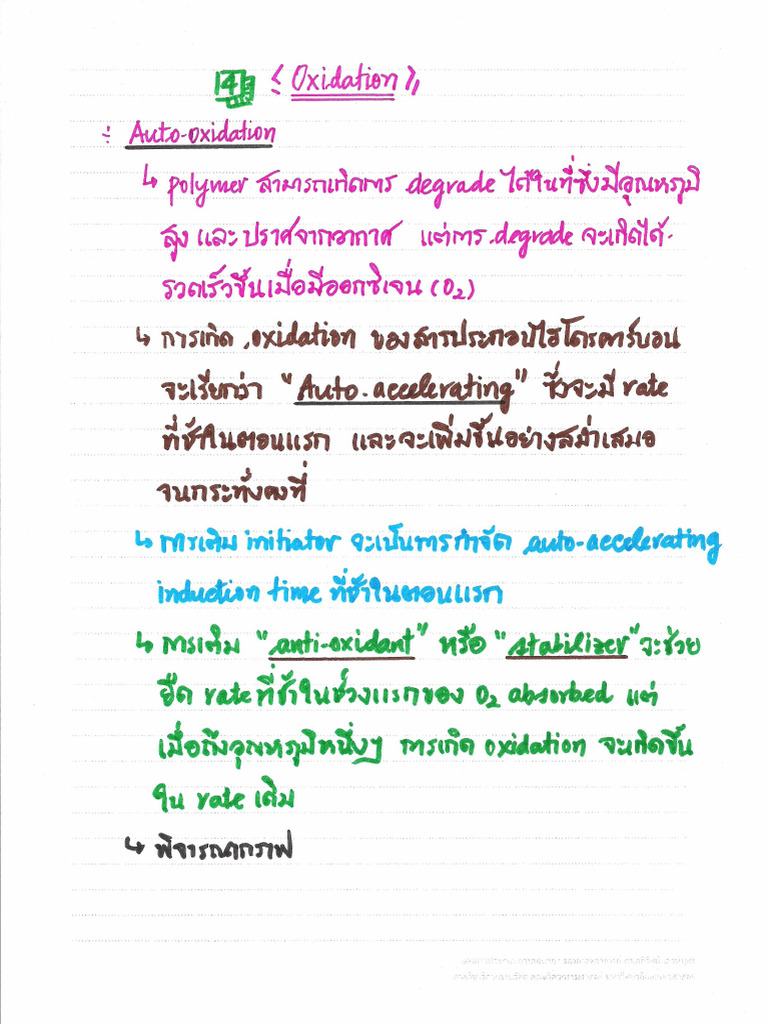 14 < Oxidation >
÷ Auto-oxidation
↳ polymer สามารถเกิดการ degrade ได้ในที่ซึ่งมีอุณหภูมิ
สูง และ ปราศจากอากาศ แต่การ degrade จะเกิดได้
รวดเร็วขึ้นเมื่อมีออกซิเจน (O₂)
↳ การเกิด oxidation ของสารประกอบไฮโดรคาร์บอน
จะเรียกว่า "Auto-accelerating" ซึ่งจะมี rate
ที่ช้าในตอนแรก และจะเพิ่มขึ้นอย่างสม่ำเสมอ
จนกระทั่งคงที่
↳ การเติม initiator จะเป็นการกำจัด auto-accelerating
induction time ที่ช้าในตอนแรก
↳ การเติม "anti-oxidant" หรือ "stabilizer" จะช่วย
ยืด rate ที่ช้าในช่วงแรกของ O₂ absorbed แต่
เมื่อถึงอุณหภูมิหนึ่งๆ การเกิด oxidation จะเกิดขึ้น
ใน rate เดิม
↳ พิจารณากราฟ